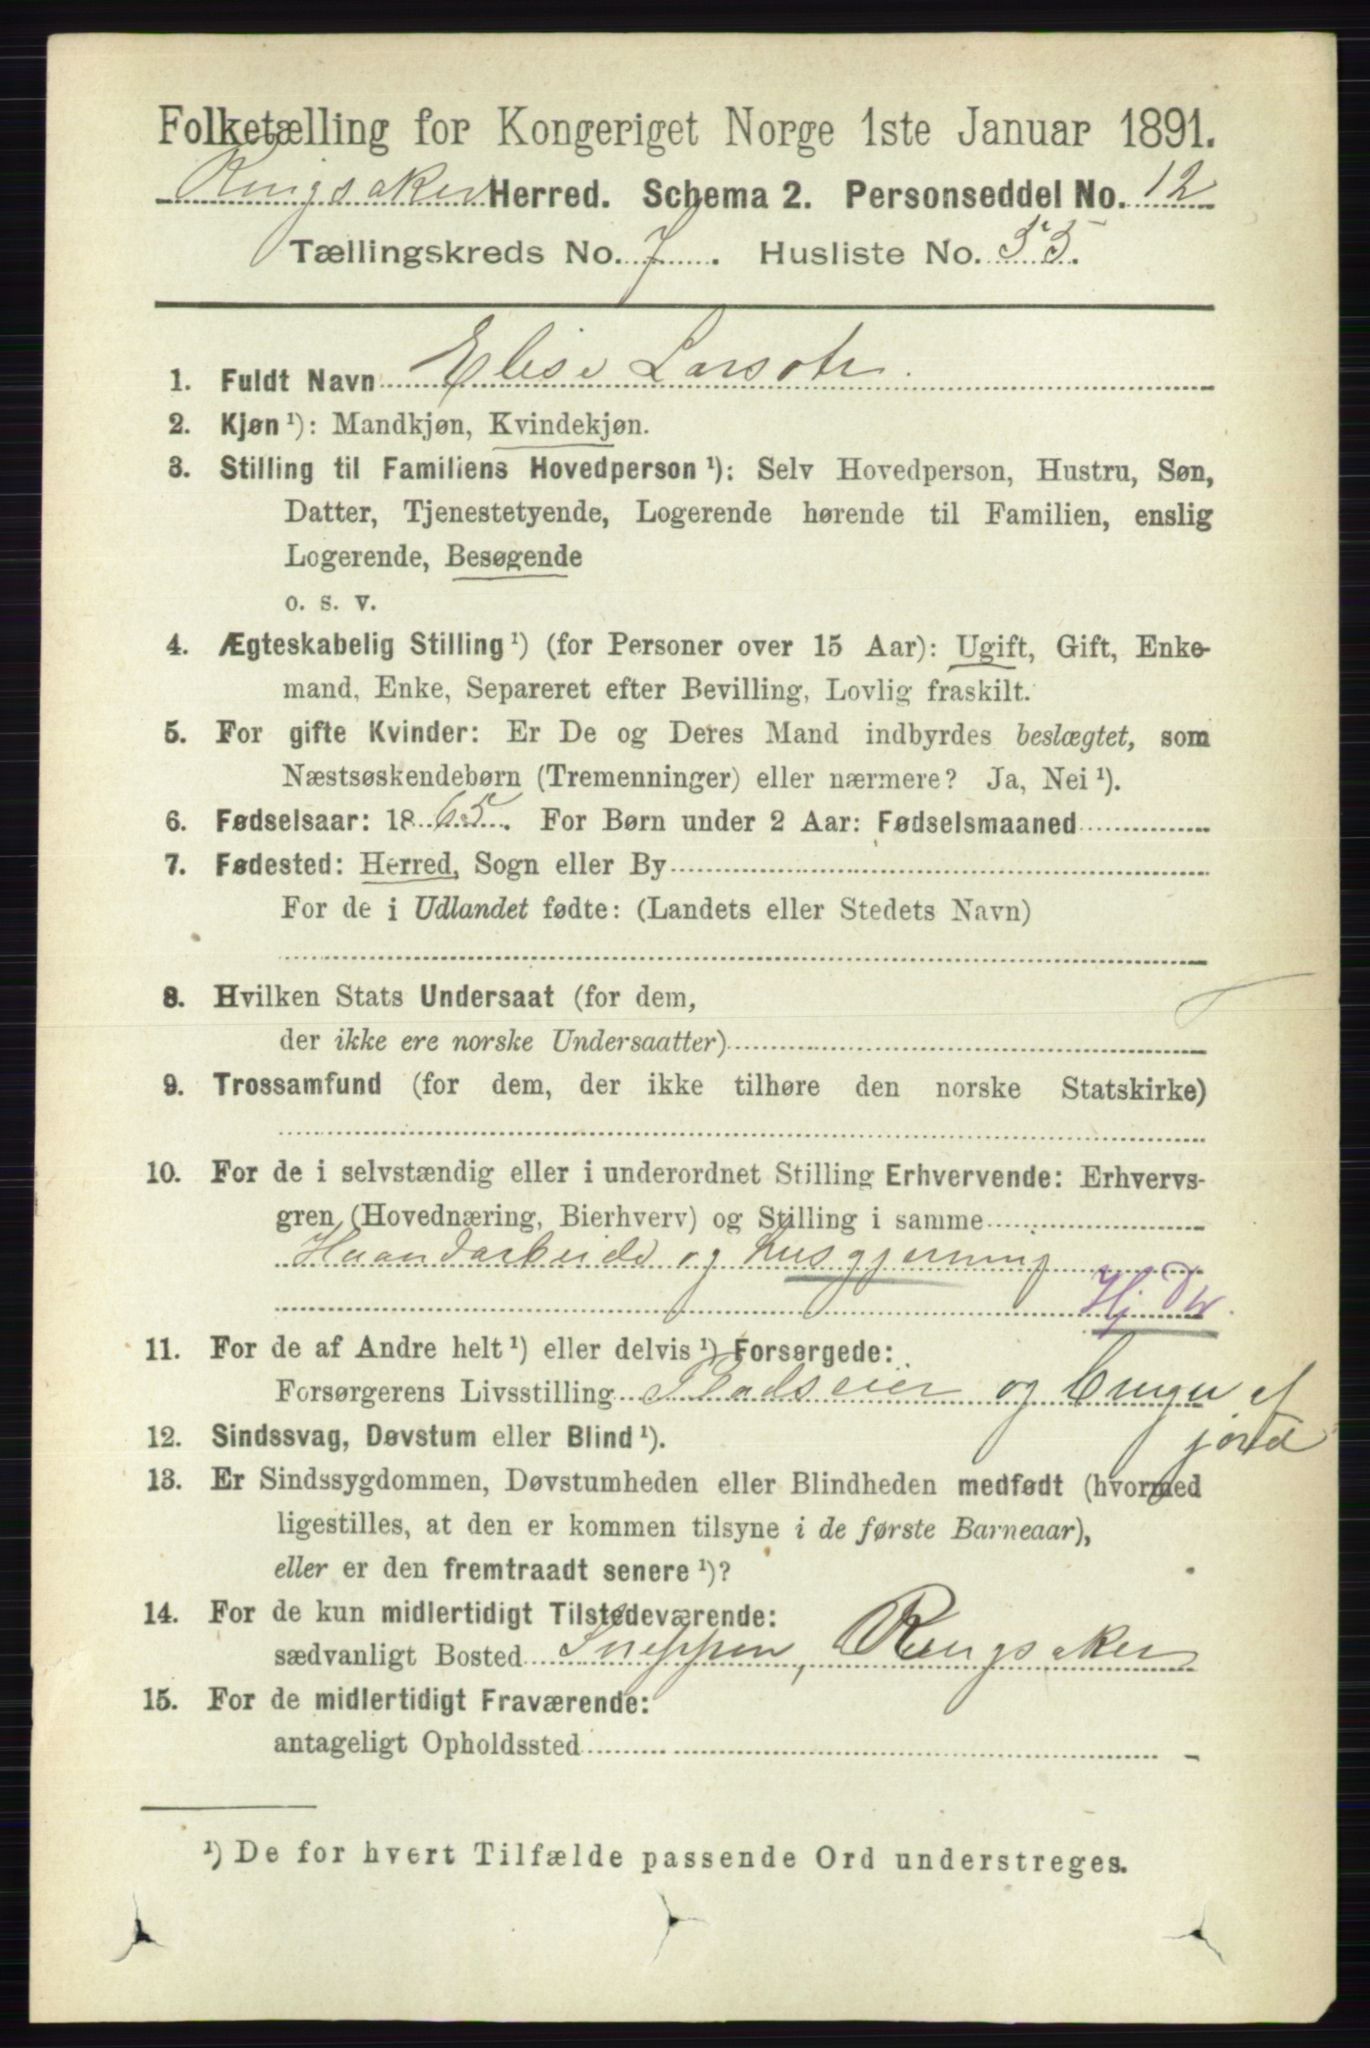 Folketælling for Kongeriget Norge 1ste Januar 1891.
Ringsaker Herred. Schema 2. Personseddel No. 12
Tællingskreds No. 7. Husliste No. 35.
1. Fuldt Navn Elise Larsdtr.
2. Kjøn ¹): Mandkjøn, Kvindekjøn.
3. Stilling til Familiens Hovedperson ¹): Selv Hovedperson, Hustru, Søn,
Datter, Tjenestetyende, Logerende hørende til Familien, enslig
Logerende, Besøgende
o. s. v.
4. Ægteskabelig Stilling ¹) (for Personer over 15 Aar): Ugift, Gift, Enke-
mand, Enke, Separeret efter Bevilling, Lovlig fraskilt.
5. For gifte Kvinder: Er De og Deres Mand indbyrdes beslægtet, som
Næstsøskendebørn (Tremenninger) eller nærmere? Ja, Nei ¹).
6. Fødselsaar: 1865. For Børn under 2 Aar: Fødselsmaaned
7. Fødested: Herred, Sogn eller By
For de i Udlandet fødte: (Landets eller Stedets Navn)
8. Hvilken Stats Undersaat (for dem,
der ikke ere norske Undersaatter)
9. Trossamfund (for dem, der ikke tilhøre den norske Statskirke)
10. For de i selvstændig eller i underordnet Stilling Erhvervende: Erhvervs-
gren (Hovednæring, Bierhverv) og Stilling i samme
Haandarbeide og husgjerning
Hj Dtr
11. For de af Andre helt ¹) eller delvis ¹) Forsørgede:
Forsørgerens Livsstilling Pladseier og bruger af
jord
12. Sindssvag, Døvstum eller Blind ¹).
13. Er Sindssygdommen, Døvstumheden eller Blindheden medfødt (hvormed
ligestilles, at den er kommen tilsyne i de første Barneaar),
eller er den fremtraadt senere ¹)?
14. For de kun midlertidigt Tilstedeværende:
sædvanligt Bosted Sneppen, Ringsaker
15. For de midlertidigt Fraværende:
antageligt Opholdssted
¹) De for hvert Tilfælde passende Ord understreges.